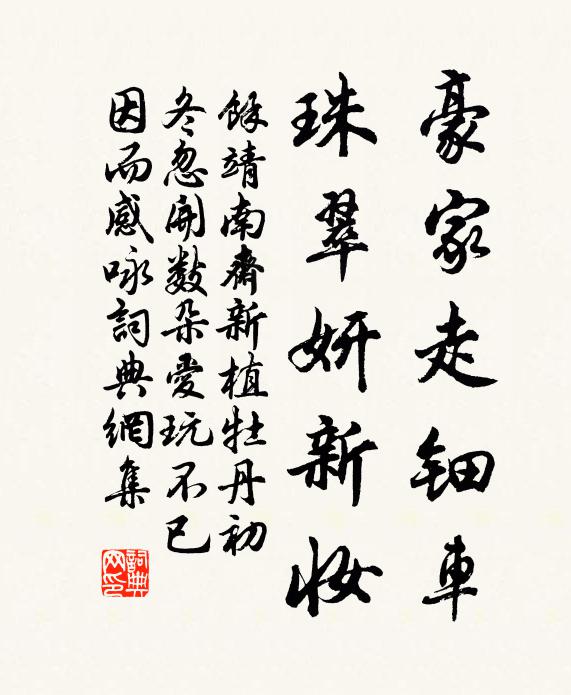 豪家走鈿車
珠翠妍新妝
餘靖南齋新植牡丹初
冬忽開數朵愛玩不已
因而感咏詞典網集
詞典網印